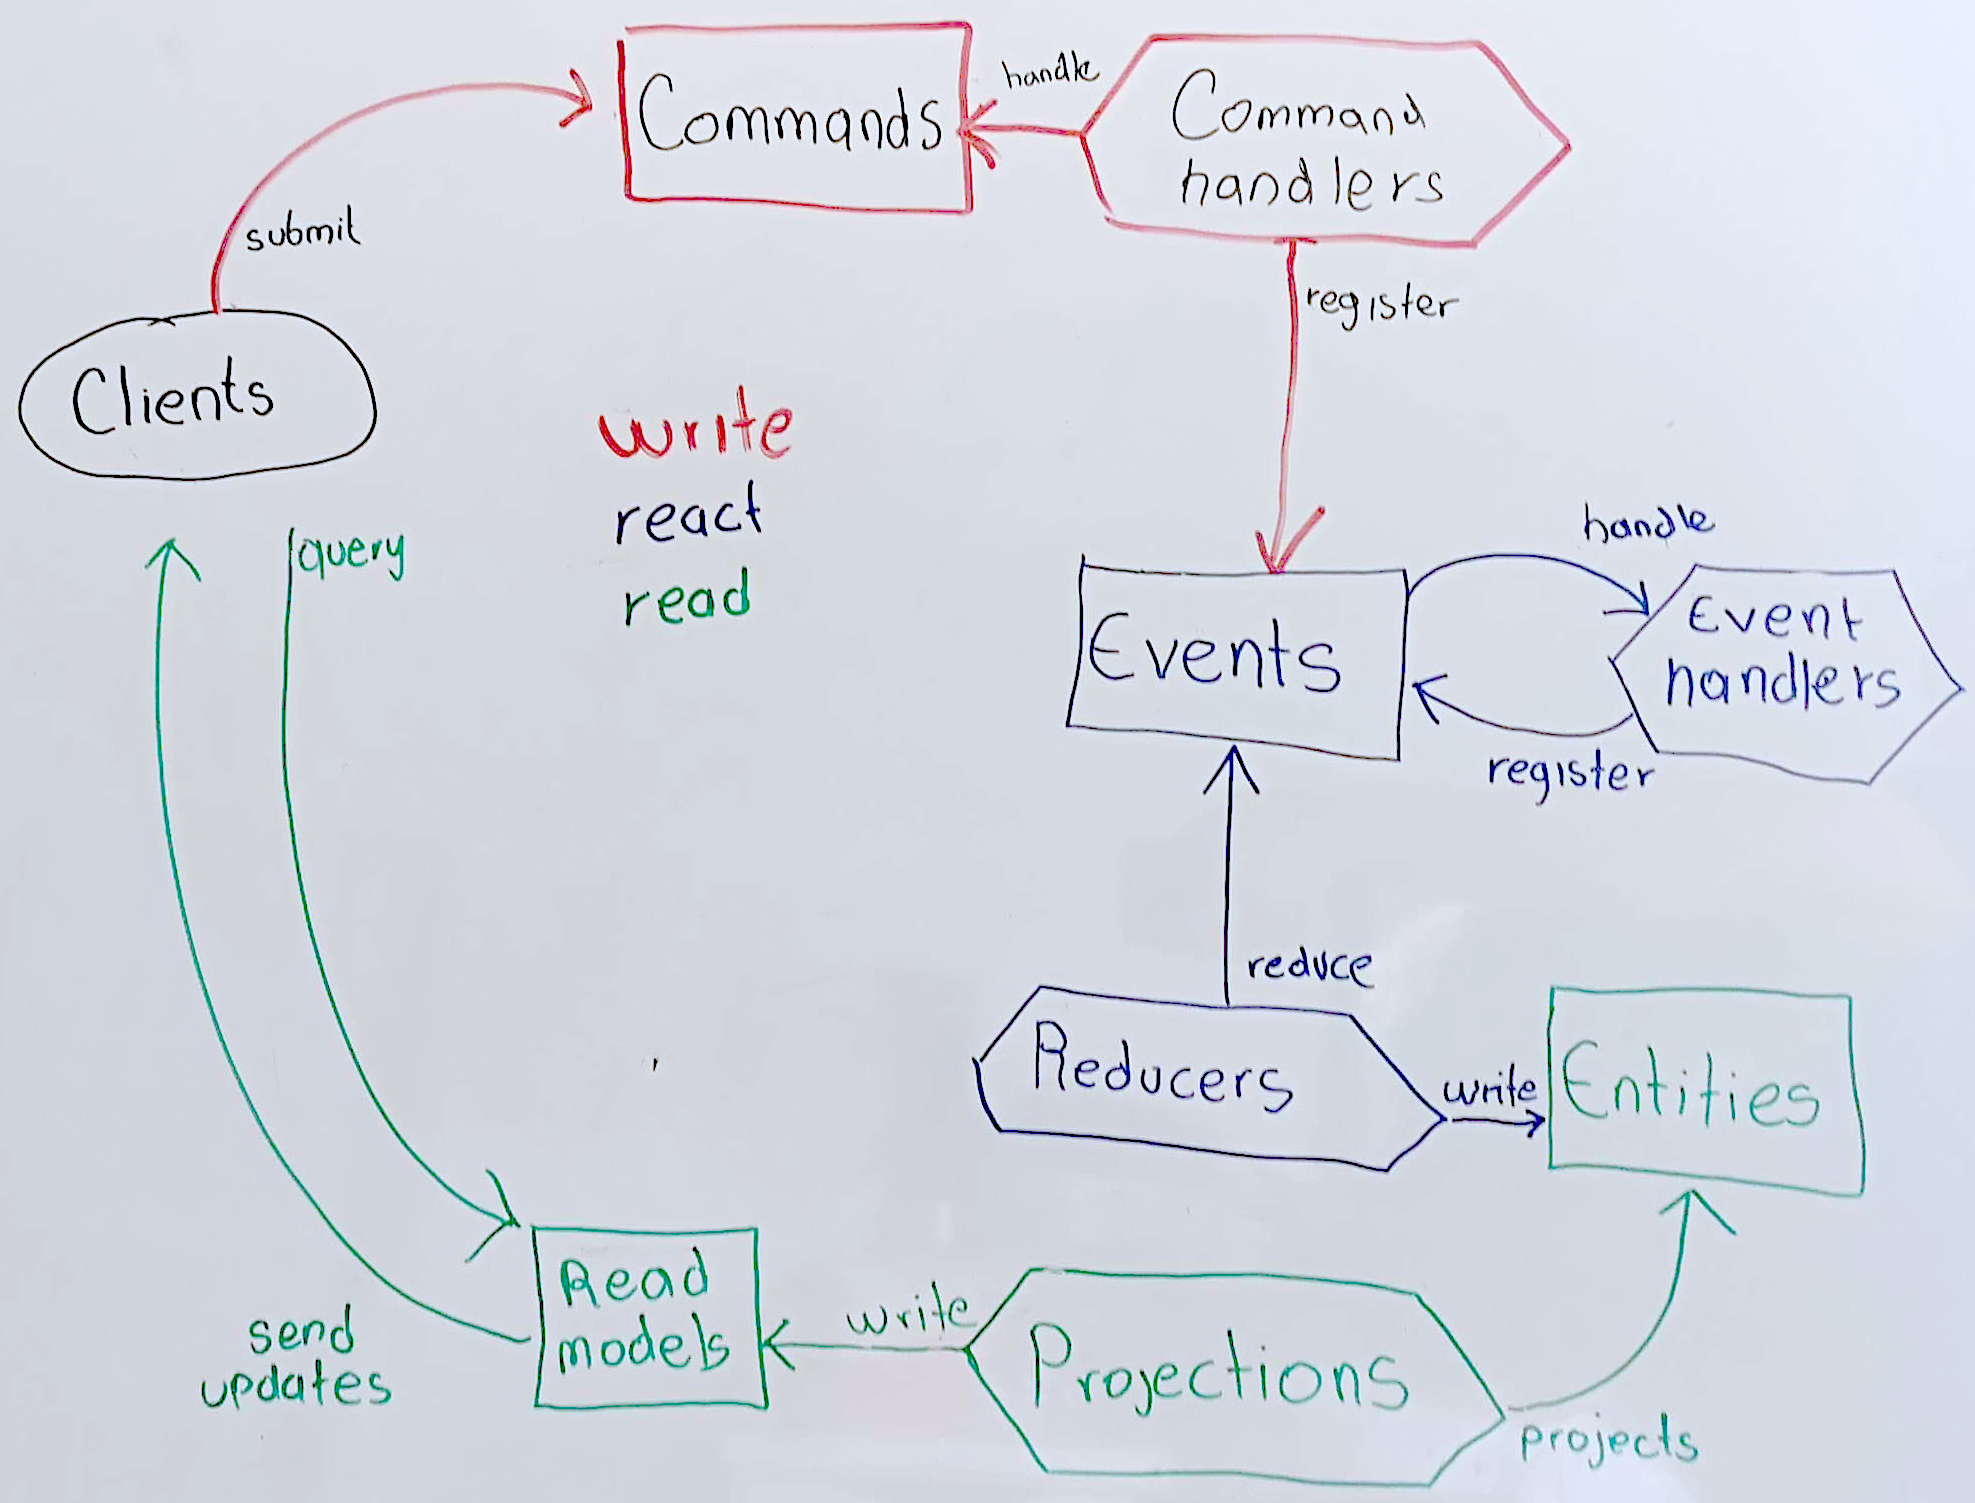 Commands
handle
Command
handlers
submit
register
Clients
write
react
read
query
handle
Events
Event
handlers
register
reduce
Reducers
write
Entities
Read
models
write
Projections
send
updates
projects